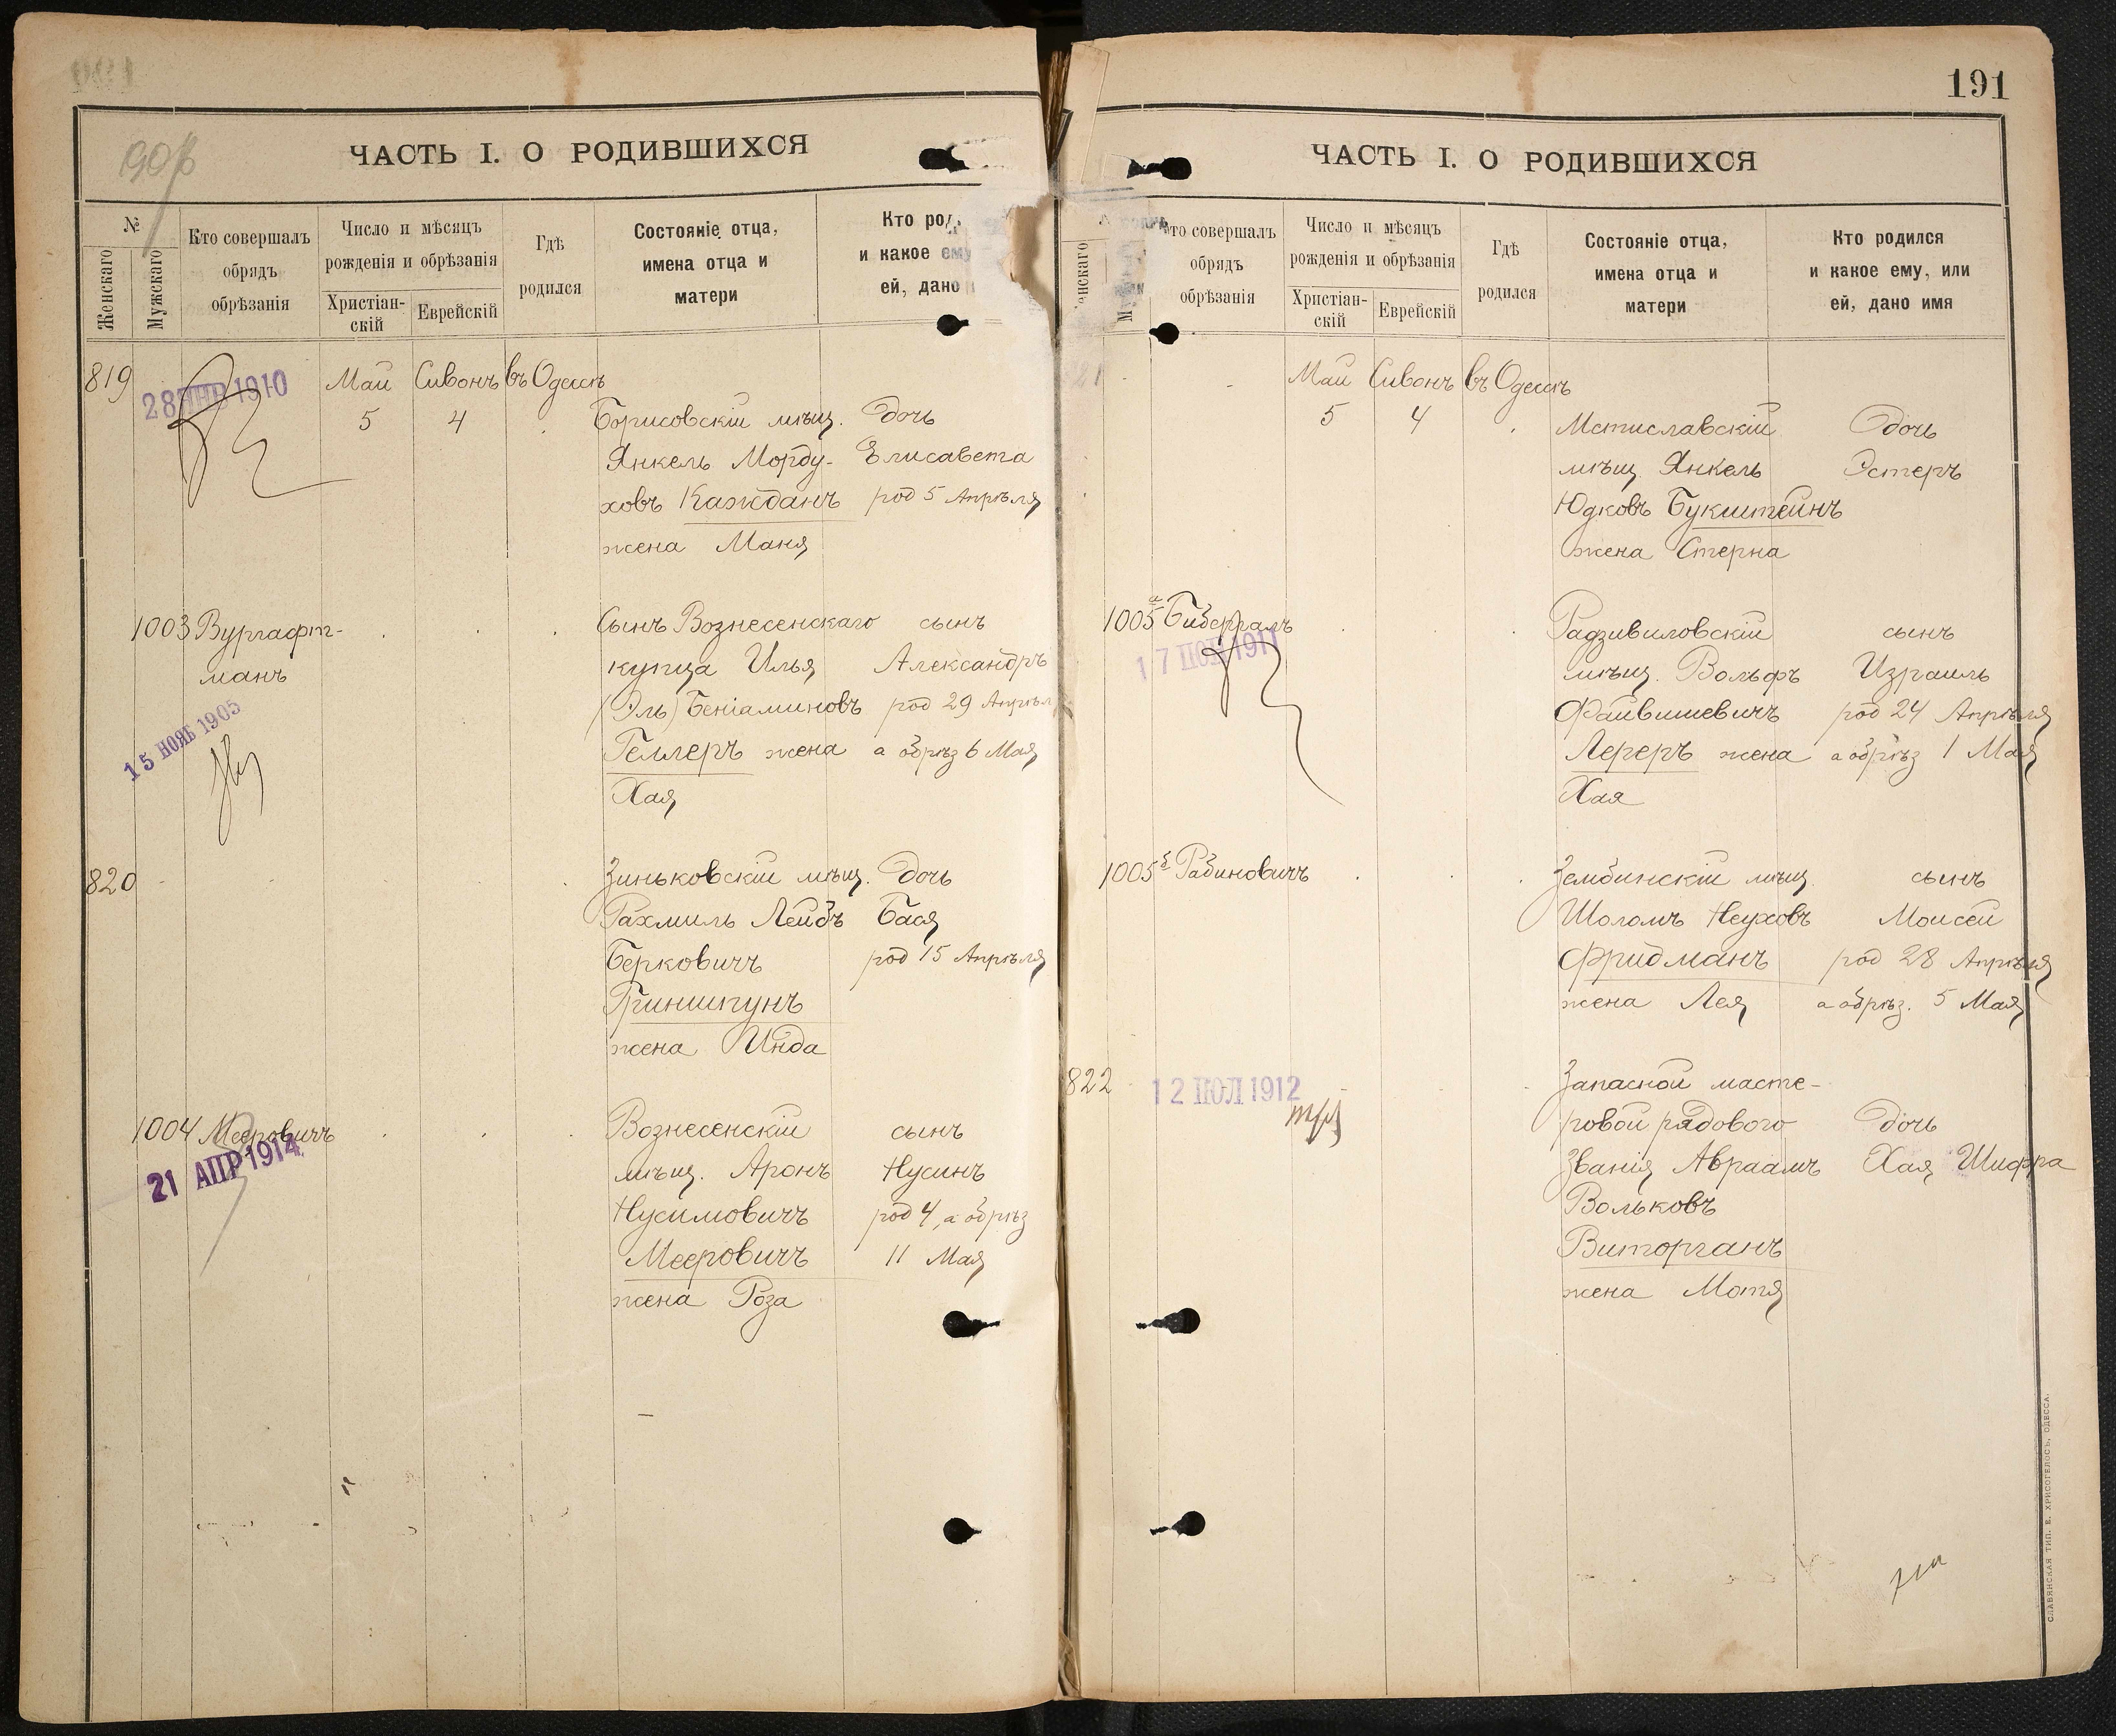 ЧАСТЬ I. О РОДИВШИХСЯ
№
Женскаго
Мужскаго
Кто совершалъ
обрядъ
обрѣзанія
Число и мѣсяцъ
рожденія и обрѣзанія
Христіан-
скій
Еврейскій
Гдѣ
родился
Состояніе отца,
имена отца и
матери
Кто род
и какое ему
ей, дано
819
28 ЯНВ 1910
Май Сивонъ въ Одессѣ
5 4
Борисовскій мѣщ. дочь
Янкель Морду- Елисавета
ховъ Кажданъ род 5 Апрѣля
жена Маня
1003 Вургафт- Сынъ Вознесенскаго сынъ
манъ купца Илья Александръ
(Эль) Беніаминовъ род 29 Апрѣл
15 НОЯБ 1905
Геллеръ жена а обрѣз 6 Мая
Хая
820 Зиньковскій мѣщ. дочь
Рахмиль Лейбъ Бася
Берковичъ род 15 Апрѣля
Гриншпунъ
жена Инда
1004 Мееровичъ Вознесенскій сынъ
21 АПР 1914
мѣщ. Аронъ Нусинъ
Нусимовичъ род 4, а обрѣз
Мееровичъ 11 Мая
жена Роза
191
ЧАСТЬ I. О РОДИВШИХСЯ
Кто совершалъ
обрядъ
обрѣзанія
Число и мѣсяцъ
рожденія и обрѣзанія
Христіан-
скій
Еврейскій
Гдѣ
родился
Состояніе отца,
имена отца и
матери
Кто родился
и какое ему, или
ей, дано имя
821 Май Сивонъ въ Одессѣ
5 4 Мстиславскій дочь
мѣщ. Янкель Эстеръ
Юдковъ Букштейнъ
жена Стерна
1005 а Бибергалъ Радзивиловскій сынъ
мѣщ. Вольфъ Израиль
Файвишевичъ род 24 Апрѣля
Лереръ жена а обрѣз 1 Мая
Хая
1005 б Рабиновичъ Зембинскій мѣщ. сынъ
Шоломъ Неуховъ Моисей
Фридманъ род 28 Апрѣля
жена Лея а обрѣз. 5 Мая
822 12 ІЮЛ 1912 Запасной масте-
ровой рядового дочь
званія Авраамъ Хая Шифра
Вольковъ
Виторганъ
жена Мотя
СЛАВЯНСКАЯ ТИП. Е. ХРИСОГЕЛОСЪ, ОДЕССА.